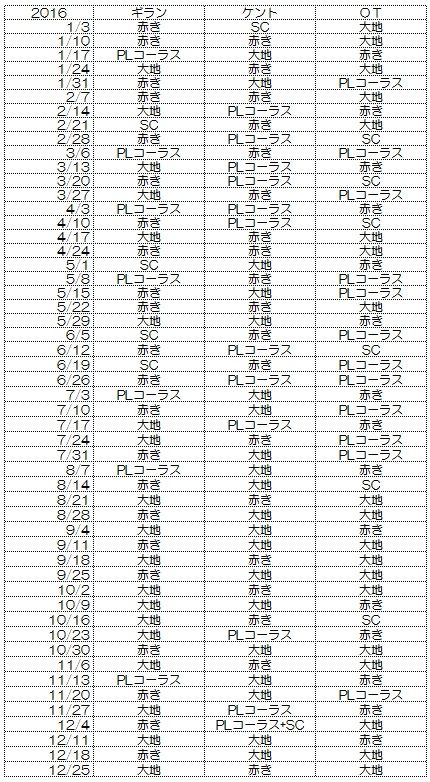 2016 ギラン ケント OT
1/3 赤き SC 大地
1/10 赤き 赤き 大地
1/17 PLコーラス 大地 赤き
1/24 大地 赤き 大地
1/31 赤き 大地 PLコーラス
2/7 赤き 赤き 大地
2/14 大地 PLコーラス 赤き
2/21 SC 赤き 大地
2/28 赤き PLコーラス SC
3/6 PLコーラス 赤き PLコーラス
3/13 大地 PLコーラス 赤き
3/20 赤き PLコーラス SC
3/27 大地 赤き PLコーラス
4/3 PLコーラス PLコーラス 赤き
4/10 赤き PLコーラス SC
4/17 大地 赤き 大地
4/24 赤き 赤き 大地
5/1 SC 大地 赤き
5/8 PLコーラス 赤き PLコーラス
5/15 赤き 大地 PLコーラス
5/22 赤き 赤き 大地
5/29 大地 大地 赤き
6/5 SC 赤き PLコーラス
6/12 赤き PLコーラス SC
6/19 SC 赤き PLコーラス
6/26 赤き PLコーラス PLコーラス
7/3 PLコーラス 大地 赤き
7/10 赤き 大地 PLコーラス
7/17 大地 PLコーラス 赤き
7/24 大地 赤き PLコーラス
7/31 赤き 大地 PLコーラス
8/7 PLコーラス 大地 赤き
8/14 赤き 大地 SC
8/21 大地 赤き 大地
8/28 赤き 大地 大地
9/4 大地 大地 赤き
9/11 赤き 赤き 大地
9/18 大地 赤き 大地
9/25 赤き 大地 大地
10/2 大地 赤き 大地
10/9 大地 大地 赤き
10/16 大地 赤き SC
10/23 大地 PLコーラス 赤き
10/30 赤き 大地 大地
11/6 大地 赤き 大地
11/13 PLコーラス 大地 赤き
11/20 赤き 大地 PLコーラス
11/27 大地 PLコーラス 赤き
12/4 赤き PLコーラス+SC 大地
12/11 大地 大地 赤き
12/18 赤き 大地 大地
12/25 大地 赤き 大地